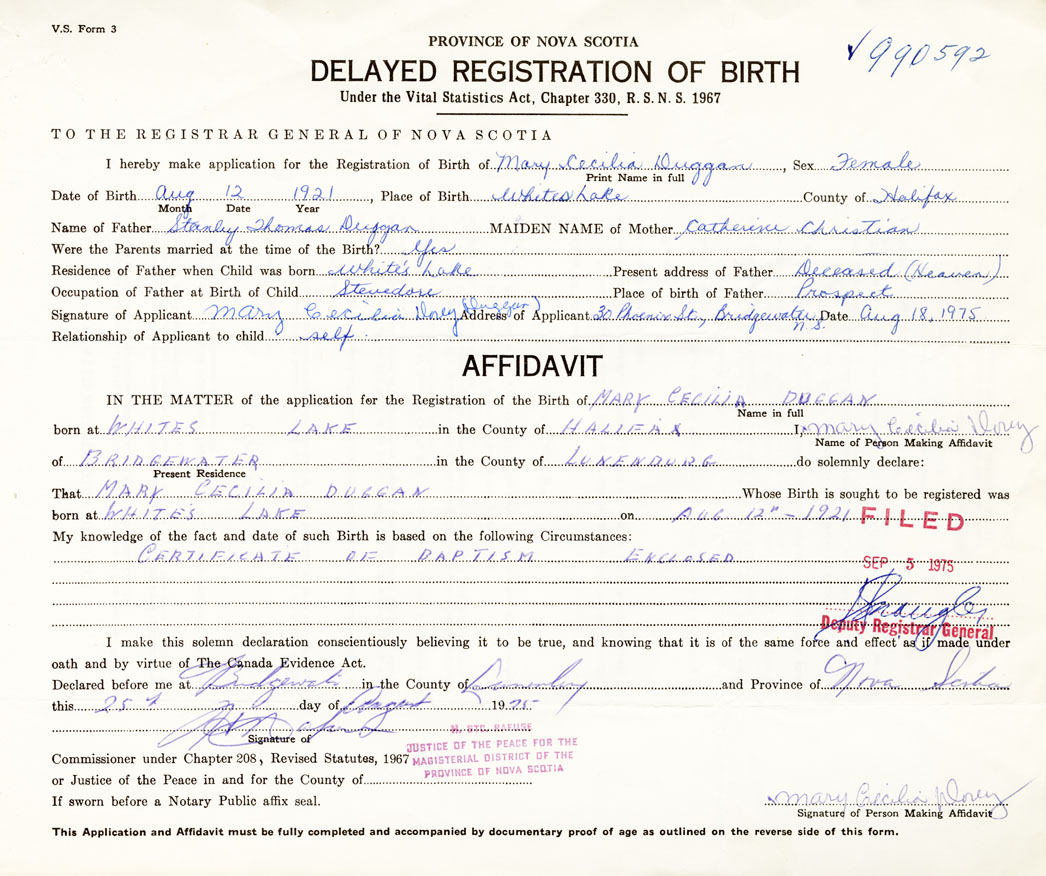 V.S. Form 3
990592
PROVINCE OF NOVA SCOTIA
DELAYED REGISTRATION OF BIRTH
Under the Vital Statistics Act, Chapter 330, R.S.N.S. 1967
TO THE REGISTRAR GENERAL OF NOVA SCOTIA
I hereby make application for the Registration of Birth of Mary Cecilia Duggan, Sex Female
Print Name in full
Date of Birth Aug 12 1921, Place of Birth Whites Lake County of Halifax
Month Date Year
Name of Father Stanley Thomas Duggan MAIDEN NAME of Mother Catherine Christian
Were the Parents married at the time of the Birth? Yes
Residence of Father when Child was born White's Lake Present address of Father Deceased (Heaven)
Occupation of Father at Birth of Child Stevedore Place of birth of Father Prospect
Signature of Applicant Mary Cecilia Dorey (Duggan) Address of Applicant 30 Phoenix St., Bridgewater N.S. Date Aug 18, 1975
Relationship of Applicant to child self
AFFIDAVIT
IN THE MATTER of the application for the Registration of the Birth of MARY CECILIA DUGGAN
Name in full
born at WHITES LAKE in the County of HALIFAX I, Mary Cecilia Dorey
Name of Person Making Affidavit
of BRIDGEWATER in the County of LUNENBURG do solemnly declare:
Present Residence
That MARY CECILIA DUGGAN Whose Birth is sought to be registered was
born at WHITE'S LAKE on AUG 12th - 1921
FILED
My knowledge of the fact and date of such Birth is based on the following Circumstances:
CERTIFICATE OF BAPTISM ENCLOSED
SEP 5 1975
Deputy Registrar General
I make this solemn declaration conscientiously believing it to be true, and knowing that it is of the same force and effect as if made under
oath and by virtue of The Canada Evidence Act.
Declared before me at Bridgewater in the County of Lunenburg and Province of Nova Scotia
this 25th day of August 1975
Signature of
Commissioner under Chapter 208, Revised Statutes, 1967
or Justice of the Peace in and for the County of
If sworn before a Notary Public affix seal.
JUSTICE OF THE PEACE FOR THE
MAGISTERIAL DISTRICT OF THE
PROVINCE OF NOVA SCOTIA
Mary Cecilia Dorey
Signature of Person Making Affidavit
This Application and Affidavit must be fully completed and accompanied by documentary proof of age as outlined on the reverse side of this form.